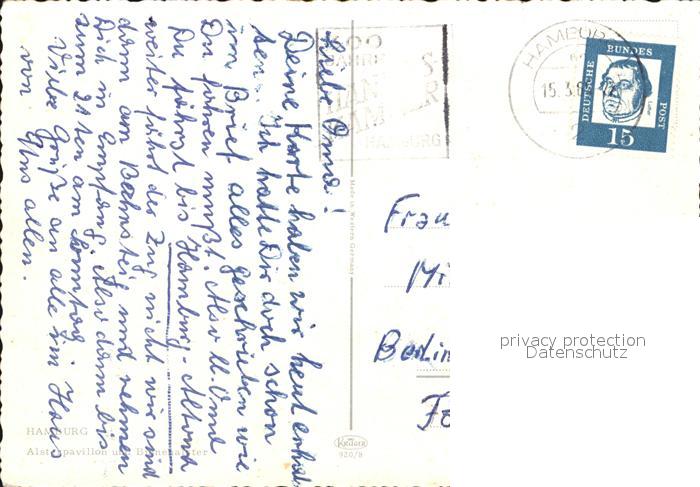 Liebe Oma!
Deine Karte haben wir heut erhal
ten. Ich hatte Dir doch schon
im Brief alles geschrieben wie
Du fahren mußt. Also U. Oma
Du fährst bis Hamburg-Altona
weiter fährt der Zug nicht wir sind
dann am Bahnstei und nehmen
Dich in Empfang. Also dann bis
zum 21ten am Sonntag.
Viele Grüße an alle im Haus
von Uns allen.
HAMBURG
Alsterpavillon und Binnenalster
Made in Western Germany
Krüger
920/8
JAHRE
HAMBURG
HAMBURG
15.3.
DEUTSCHE BUNDES POST
Luther
15
Frau
Mi
Berlin
privacy protection
Datenschutz